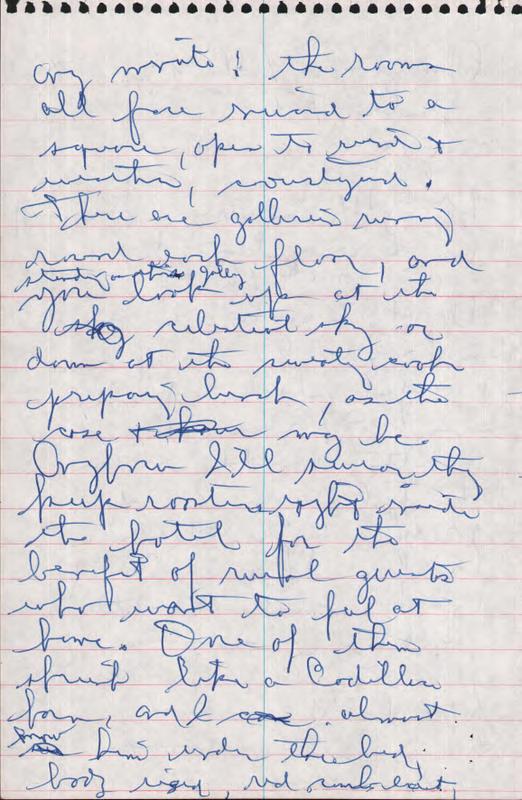 any minute! the rooms
all face inward to a
square, open to wind &
weather, courtyard.
There are galleries running
around each floor, and
standing on this galley
you look up at the
sky celestial sky or
down at the sweaty cooks
preparing lunch, as the
case may be.
Anyhow I'll swear they
keep roosters right inside
the hotel for the
benefit of rural guests
who want to feel at
home. One of them
shrieks like a Cadillac
horn, and I almost
know him under the bed,
body rigid, red